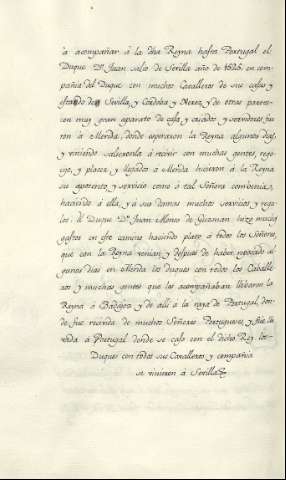 ia acompañar á la dha Reyna hasta Portugal el
Duque Dn Juan salio de Sevilla año de 1526 en com-
pañia del Duque con muchos Caballeros de sus casas y
estado de Sevilla, y Cordoba y Xerez, y de otras partes
con muy gran aparato de casa, y criados, y servidores fue-
ron á Merida, donde esperaron la Reyna algunos dias,
y viniendo salieronla á recivir con muchas gentes, rego-
cijo, y placer, y llegados á Merida hicieron á la Reyna
su aposento, y servicio como á tal Señora combenia,
haciendo á ella, y á sus Damas muchos servicios, y rega-
los: el Duque Dn Juan Alonso de Guzman hizo muchos
gastos en este camino haciendo plato á todos los Señores,
que con la Reyna venian, y despues de haber reposado al-
gunos dias en Merida los Duques con todos los Caballe-
ros y muchas gentes que los acompañaban llebaron la
Reyna á Badajoz y de alli á la raya de Portugal, don-
de fue recivida de muchos Señores Portugueses, y fue lle-
vada á Portugal donde se caso con el dicho Rey los
Duques con todos sus Caballeros y compañia
se vinieron á Sevilla